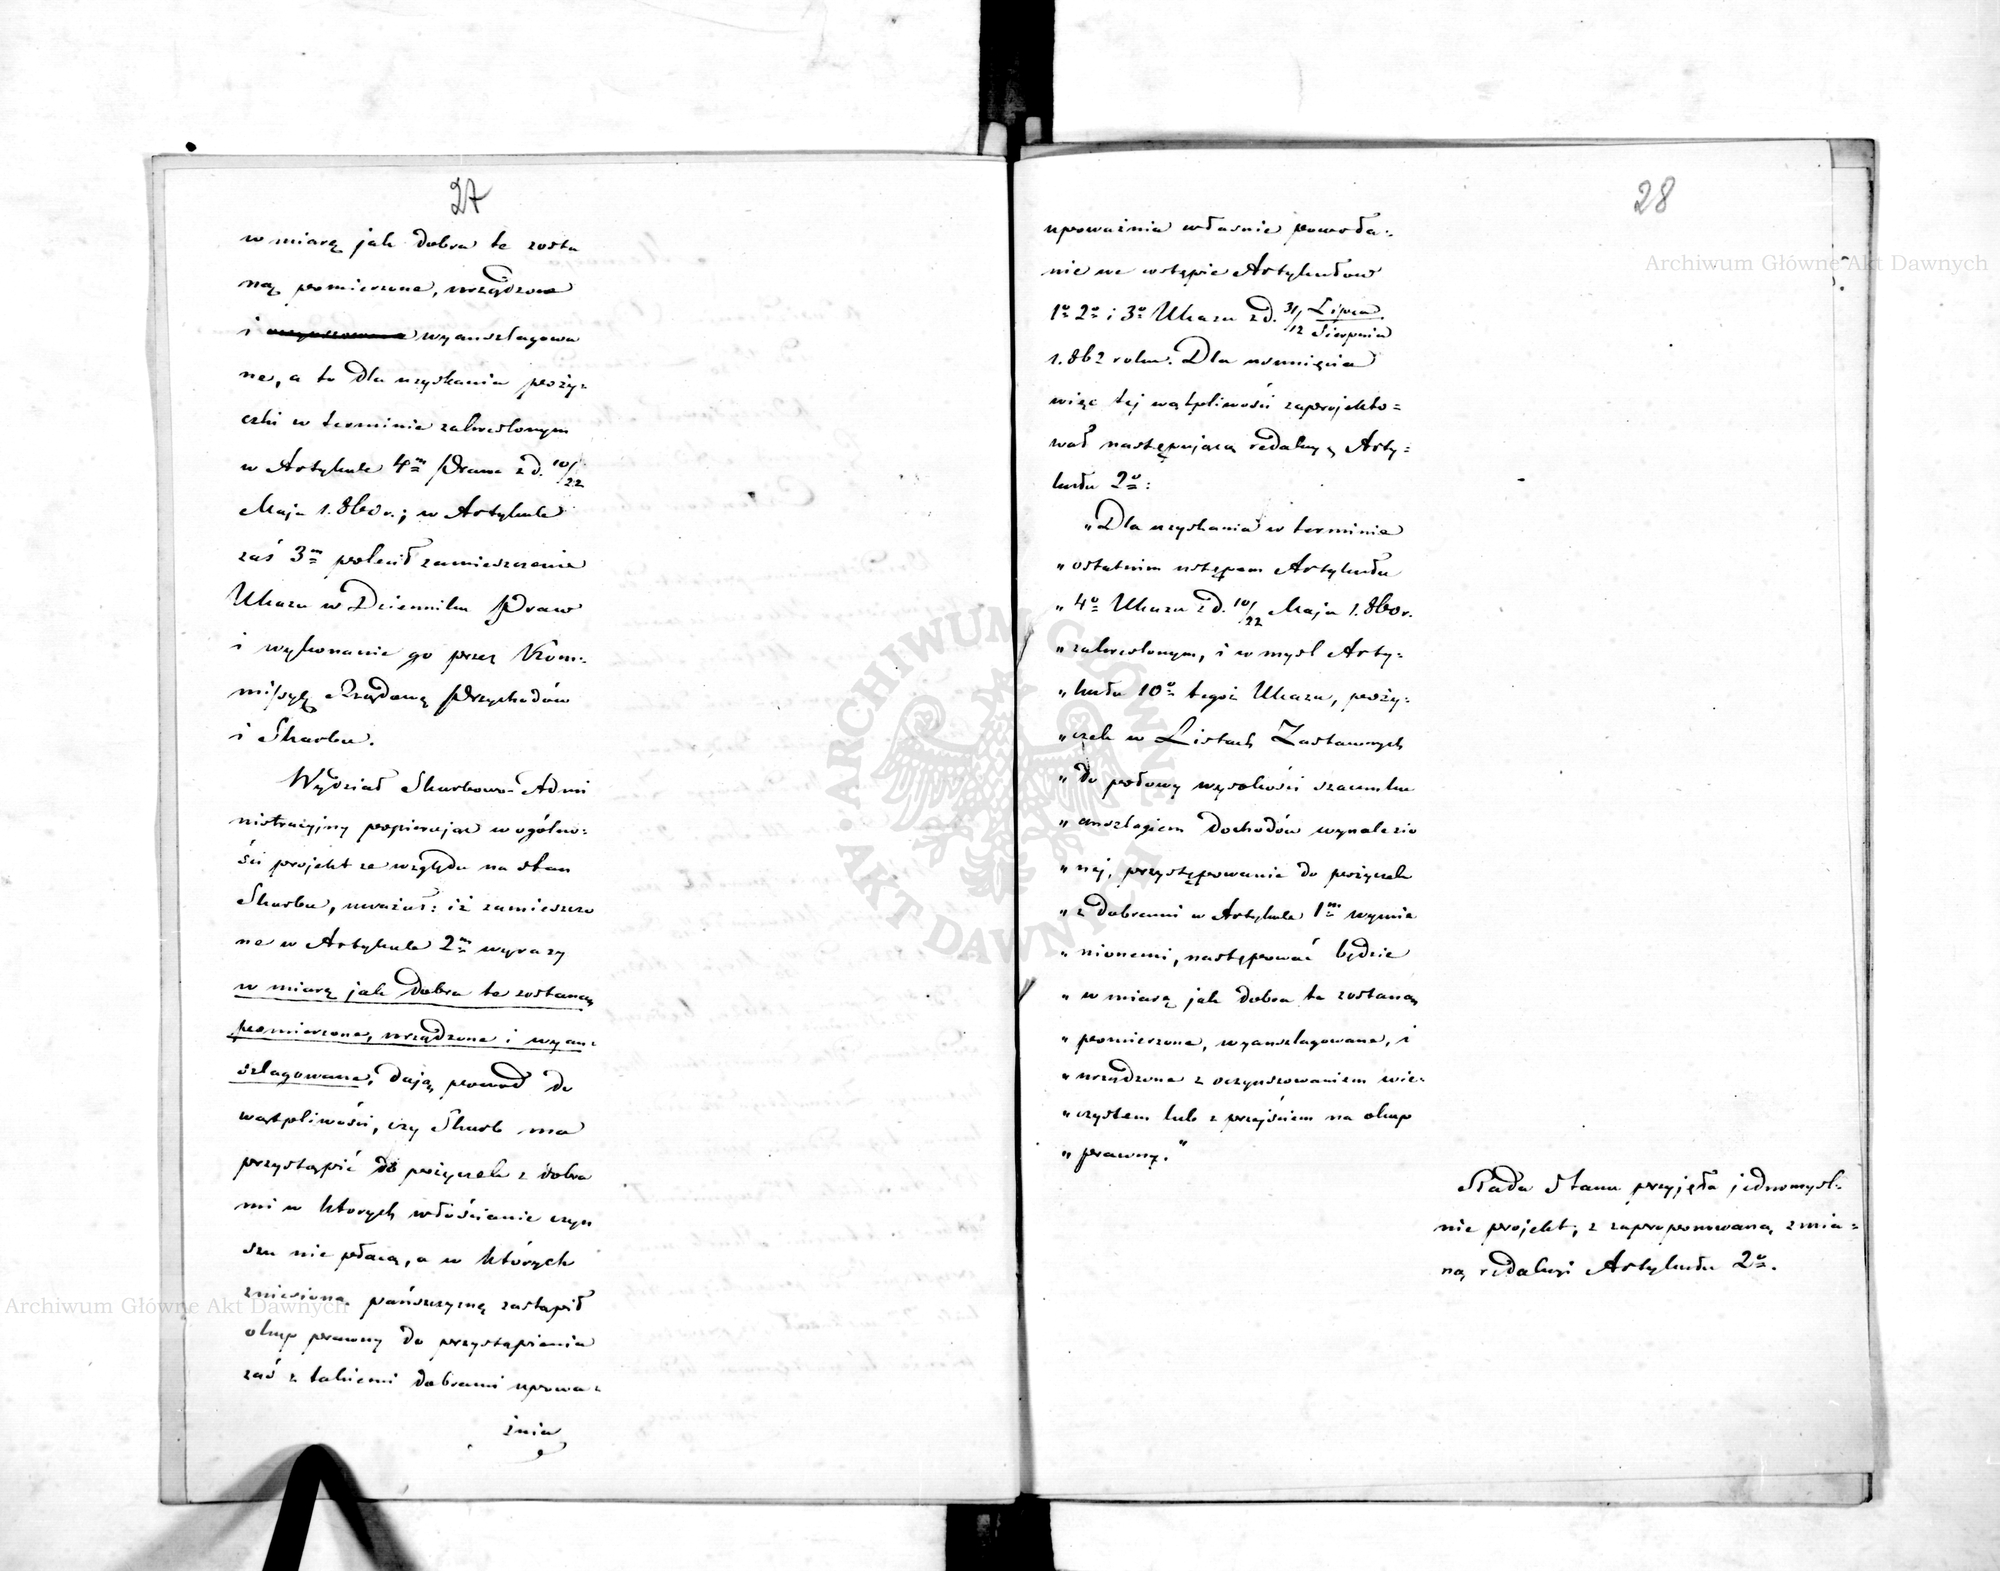 27
w miarę jak dobra te zosta
ną pomierzone, urządzone
i wyanszlagowa
ne, a to dla uzyskania poży=
czki w terminie zakreślonym
w Artykule 4m Prawa z d. 10/22
Maja 1.860 r.; w Artykule
zaś 3m polecił zamieszczenie
Ukazu w Dzienniku Praw
i wykonanie go przez Kom=
missyę Rządową Przychodów
i Skarbu.
Wydział Skarbowo-Admi
nistracyjny popierając w ogólno=
ści projekt ze względu na stan
Skarbu, uważał: iż zamieszczo
ne w Artykule 2m wyrazy
w miarę jak dobra te zostaną
pomierzone, urządzone i wyan=
szlagowane, dają powód do
wątpliwości, czy Skarb ma
przystąpić do pożyczek z dobra
mi w których włościanie czyn
szu nie płacą, a w których
zniesioną pańszczyznę zastąpił
okup prawny do przystąpienia
zaś z takiemi dobrami upowa=
żnia
28
upoważnia właśnie powoła=
nie we wstępie Artykułów
1o 2o i 3o Ukazu z d. 31/12 Lipca/Sierpnia
1.862 roku. Dla usunięcia
więc tej wątpliwości zaprojekto=
wał następującą redakcyę Arty=
kułu 2o:
„Dla uzyskania w terminie
„ostatnim ustępem Artykułu
„4o Ukazu z d. 10/22 Maja 1.860 r.
„zakreślonym, i w myśl Arty=
„kułu 10o tegoż Ukazu, poży=
„czek w Listach Zastawnych
„do połowy wysokości szacunku
„anszlagiem dochodów wynalezio
„nej, przystępowanie do pożyczek
„z dobrami w Artykule 1m wymie
„nionemi, następować będzie
„w miarę jak dobra te zostaną
„pomierzone, wyanszlagowane, i
„urządzone z oczynszowaniem wie=
„czystem lub z przejściem na okup
„prawny."
Rada Stanu przyjęła jednomyśl=
nie projekt, z zaproponowaną zmia=
ną redakcyi Artykułu 2o.
Archiwum Główne Akt Dawnych
Archiwum Główne Akt Dawnych
ARCHIWUM GŁÓWNE AKT DAWNYCH